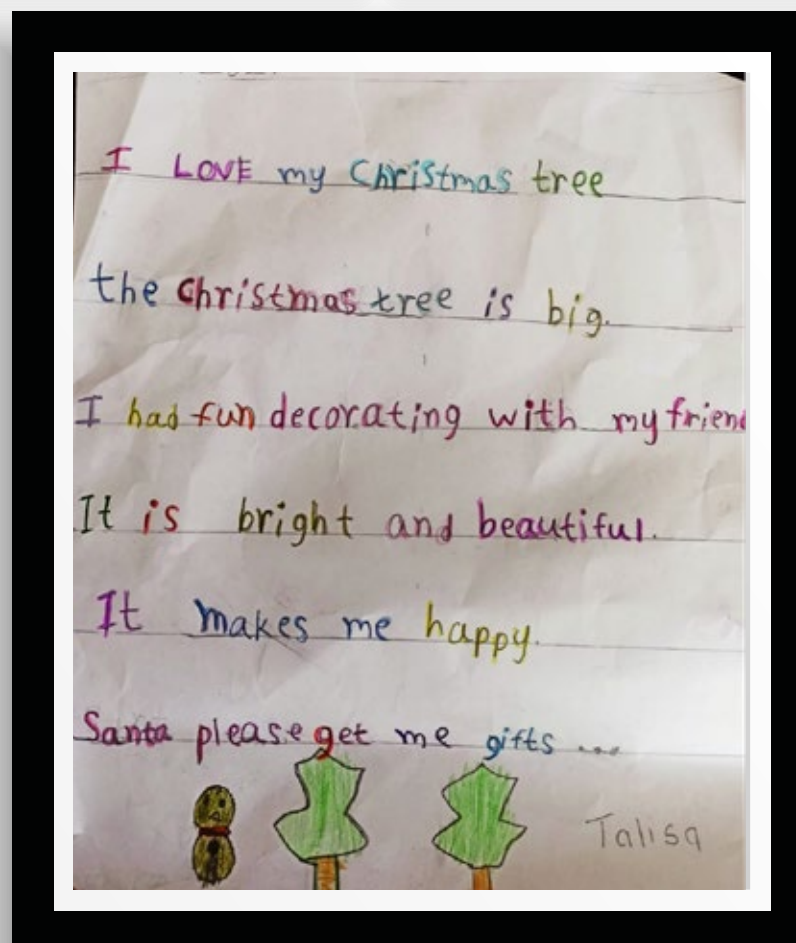 I LOVE my Christmas tree
the christmas tree is big.
I had fun decorating with my friend
It is bright and beautiful.
It makes me happy.
Santa please get me gifts ...
Talisa